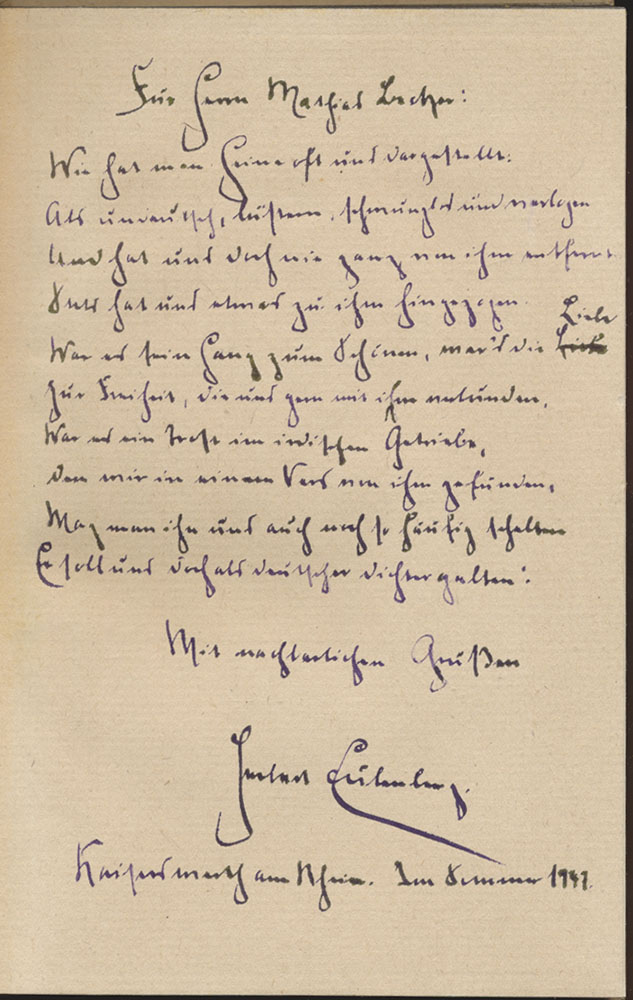 Für Herrn Mathias Becker:
Wie hat man Heine oft uns dargestellt:
Als undeutsch, lüstern, schwunglos und verlogen
Und hat uns doch nie ganz von ihm entfernt
Stets hat uns etwas zu ihm hingezogen.
Liebe
War es sein Hang zum Schönen, war's die
zur Freiheit, die uns gern mit ihm verbunden,
War es ein Trost im irdischen Getriebe,
den wir in einem Vers von ihm gefunden,
Mag man ihn uns auch noch so häufig schelten
Er soll uns doch als deutscher Dichter gelten!
Mit nachbarlichen Grüßen
Herbert Eulenberg.
Kaiserswerth am Rhein. Im Sommer